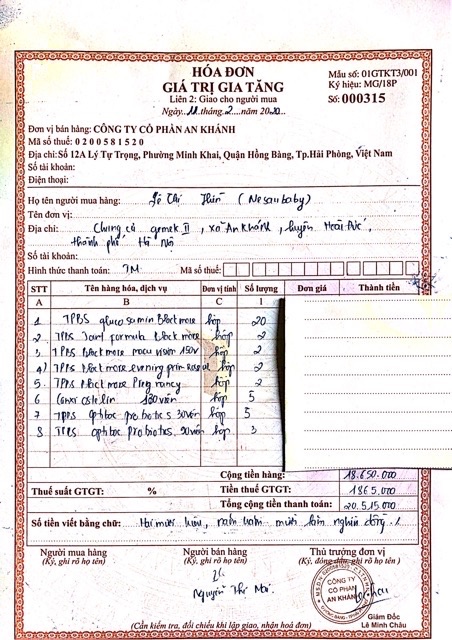 HÓA ĐƠN
GIÁ TRỊ GIA TĂNG
Liên 2: Giao cho người mua
Ngày 11 tháng 2 năm 2020
Mẫu số: 01GTKT3/001
Ký hiệu: MG/18P
Số: 000315
Đơn vị bán hàng: CÔNG TY CỔ PHẦN AN KHÁNH
Mã số thuế: 0200581520
Địa chỉ: Số 12A Lý Tự Trọng, Phường Minh Khai, Quận Hồng Bàng, Tp.Hải Phòng, Việt Nam
Số tài khoản:
Điện thoại:
Họ tên người mua hàng: Lê Thị Hiền (Nesaubaby)
Tên đơn vị:
Địa chỉ: Chung cư gemek II, xã An Khánh, huyện Hoài Đức,
thành phố Hà Nội
Số tài khoản:
Hình thức thanh toán: TM Mã số thuế:
STT Tên hàng hóa, dịch vụ Đơn vị tính Số lượng Đơn giá Thành tiền
A B C 1
1 TPBS glucosamin Blackmore hộp 20
2 TPBS Joint formula Blackmore hộp 2
3 TPBS Blackmore macu vision 150v hộp 2
4 TPBS Blackmore evening primrose oil hộp 2
5 TPBS Blackmore Pregnancy hộp 2
6 ostelin 130 viên hộp 5
7 TPBS optibac probiotics 30 viên hộp 5
8 TPBS optibac probiotics 90 viên hộp 3
Cộng tiền hàng: 18.650.000
Thuế suất GTGT: % Tiền thuế GTGT: 1865.000
Tổng cộng tiền thanh toán: 20.515.000
Số tiền viết bằng chữ: Hai mươi triệu, năm trăm mười lăm nghìn đồng./
Người mua hàng Người bán hàng Thủ trưởng đơn vị
(Ký, ghi rõ họ tên) (Ký, ghi rõ họ tên) (Ký, đóng dấu, ghi rõ họ tên)
CÔNG TY
CỔ PHẦN
AN KHÁNH
Nguyễn Thị Mai
Giám Đốc
Lê Minh Châu
(Cần kiểm tra, đối chiếu khi lập, giao, nhận hoá đơn)